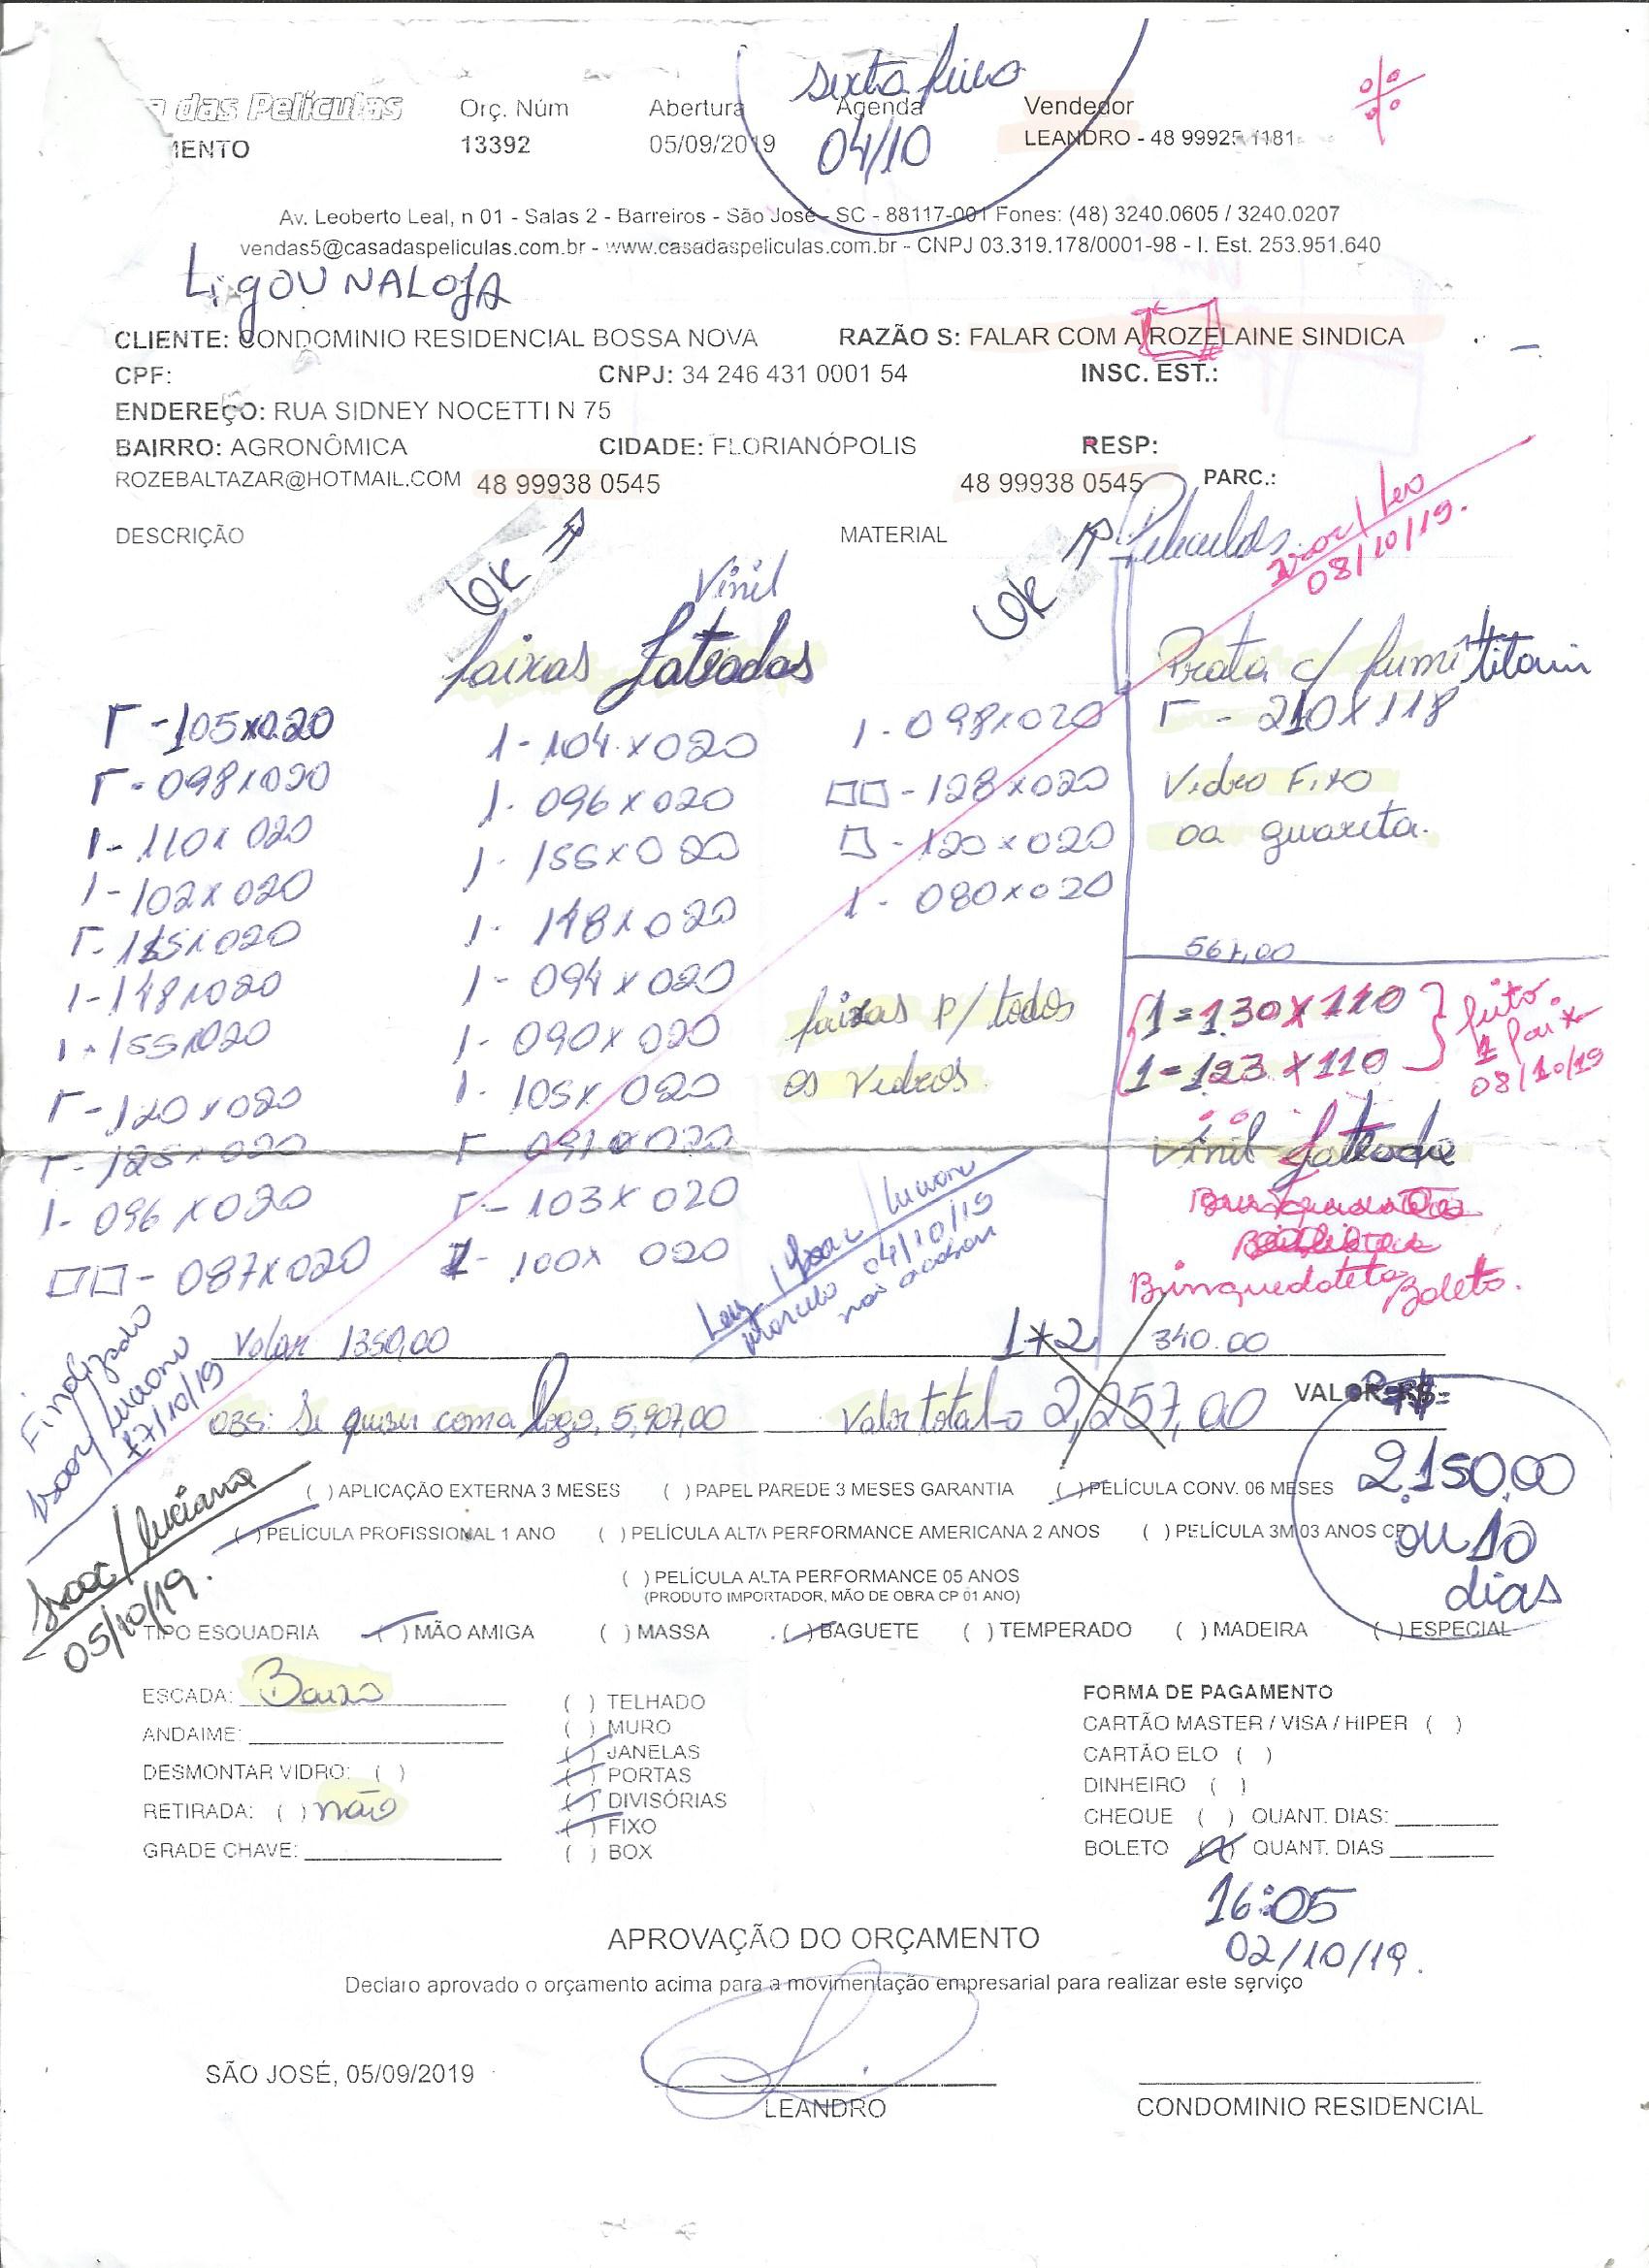 a das Películas Orç. Núm Abertura Agenda Vendedor
sexta feira
MENTO 13392 05/09/2019 04/10 LEANDRO - 48 99925 1181
Av. Leoberto Leal, n 01 - Salas 2 - Barreiros - São José - SC - 88117-001 Fones: (48) 3240.0605 / 3240.0207
vendas5@casadaspeliculas.com.br - www.casadaspeliculas.com.br - CNPJ 03.319.178/0001-98 - I. Est. 253.951.640
LigOU NA LOJA
CLIENTE: CONDOMINIO RESIDENCIAL BOSSA NOVA RAZÃO S: FALAR COM A ROZELAINE SINDICA
CPF: CNPJ: 34 246 431 0001 54 INSC. EST.:
ENDEREÇO: RUA SIDNEY NOCETTI N 75
BAIRRO: AGRONÔMICA CIDADE: FLORIANÓPOLIS RESP:
ROZEBALTAZAR@HOTMAIL.COM 48 99938 0545 48 99938 0545 PARC.:
DESCRIÇÃO MATERIAL
Ok Ok Películas
Isaac/Leo
08/10/19.
Vinil
faixas Jateadas
Γ - 105x020
Γ - 098x020
1 - 110x020
1 - 102x020
Γ - 020
1 - 148x020
1 - 155x020
Γ - 120x020
Γ - 125x020
1 - 096x020
□□ - 087x020
1 - 104x020
1 - 096x020
1 - 155x020
1 - 148x020
1 - 094x020
1 - 090x020
1 - 105x020
Γ - 091x020
Γ - 103x020
1 - 100x020
1 - 098x020
□□ - 128x020
□ - 120x020
1 - 080x020
faixas p/ todos
os vidros.
Prata c/ fumê titanium
Γ - 210x118
Vidro Fixo
da guarita.
567,00
1 = 130x110
1 = 123x110
feito
1 faixa
08/10/19
Vinil Jateado
Brinquedoteca
Boleto.
Isaac / Luciano
Marcelo 04/10/19
não acabou
Valor 1350,00 1*2 340.00
OBS: Se quiser com a logo, 5,907,00 Valor total 2,257,00 VALOR R$=
2.150,00
ou 10
dias
Finalizado
Isaac/Luciano
17/10/19
Isaac/Luciano
05/10/19.
( ) APLICAÇÃO EXTERNA 3 MESES ( ) PAPEL PAREDE 3 MESES GARANTIA ( ) PELÍCULA CONV. 06 MESES
( ) PELÍCULA PROFISSIONAL 1 ANO ( ) PELÍCULA ALTA PERFORMANCE AMERICANA 2 ANOS ( ) PELÍCULA 3M 03 ANOS CP
( ) PELÍCULA ALTA PERFORMANCE 05 ANOS
(PRODUTO IMPORTADOR, MÃO DE OBRA CP 01 ANO)
TIPO ESQUADRIA ( ) MÃO AMIGA ( ) MASSA ( ) BAGUETE ( ) TEMPERADO ( ) MADEIRA ( ) ESPECIAL
ESCADA: Baixo
ANDAIME:
DESMONTAR VIDRO: ( )
RETIRADA: ( ) não
GRADE CHAVE:
( ) TELHADO
( ) MURO
( ) JANELAS
( ) PORTAS
( ) DIVISÓRIAS
( ) FIXO
( ) BOX
FORMA DE PAGAMENTO
CARTÃO MASTER / VISA / HIPER ( )
CARTÃO ELO ( )
DINHEIRO ( )
CHEQUE ( ) QUANT. DIAS:
BOLETO (X) QUANT. DIAS
16:05
02/10/19.
APROVAÇÃO DO ORÇAMENTO
Declaro aprovado o orçamento acima para a movimentação empresarial para realizar este serviço
SÃO JOSÉ, 05/09/2019
LEANDRO CONDOMINIO RESIDENCIAL